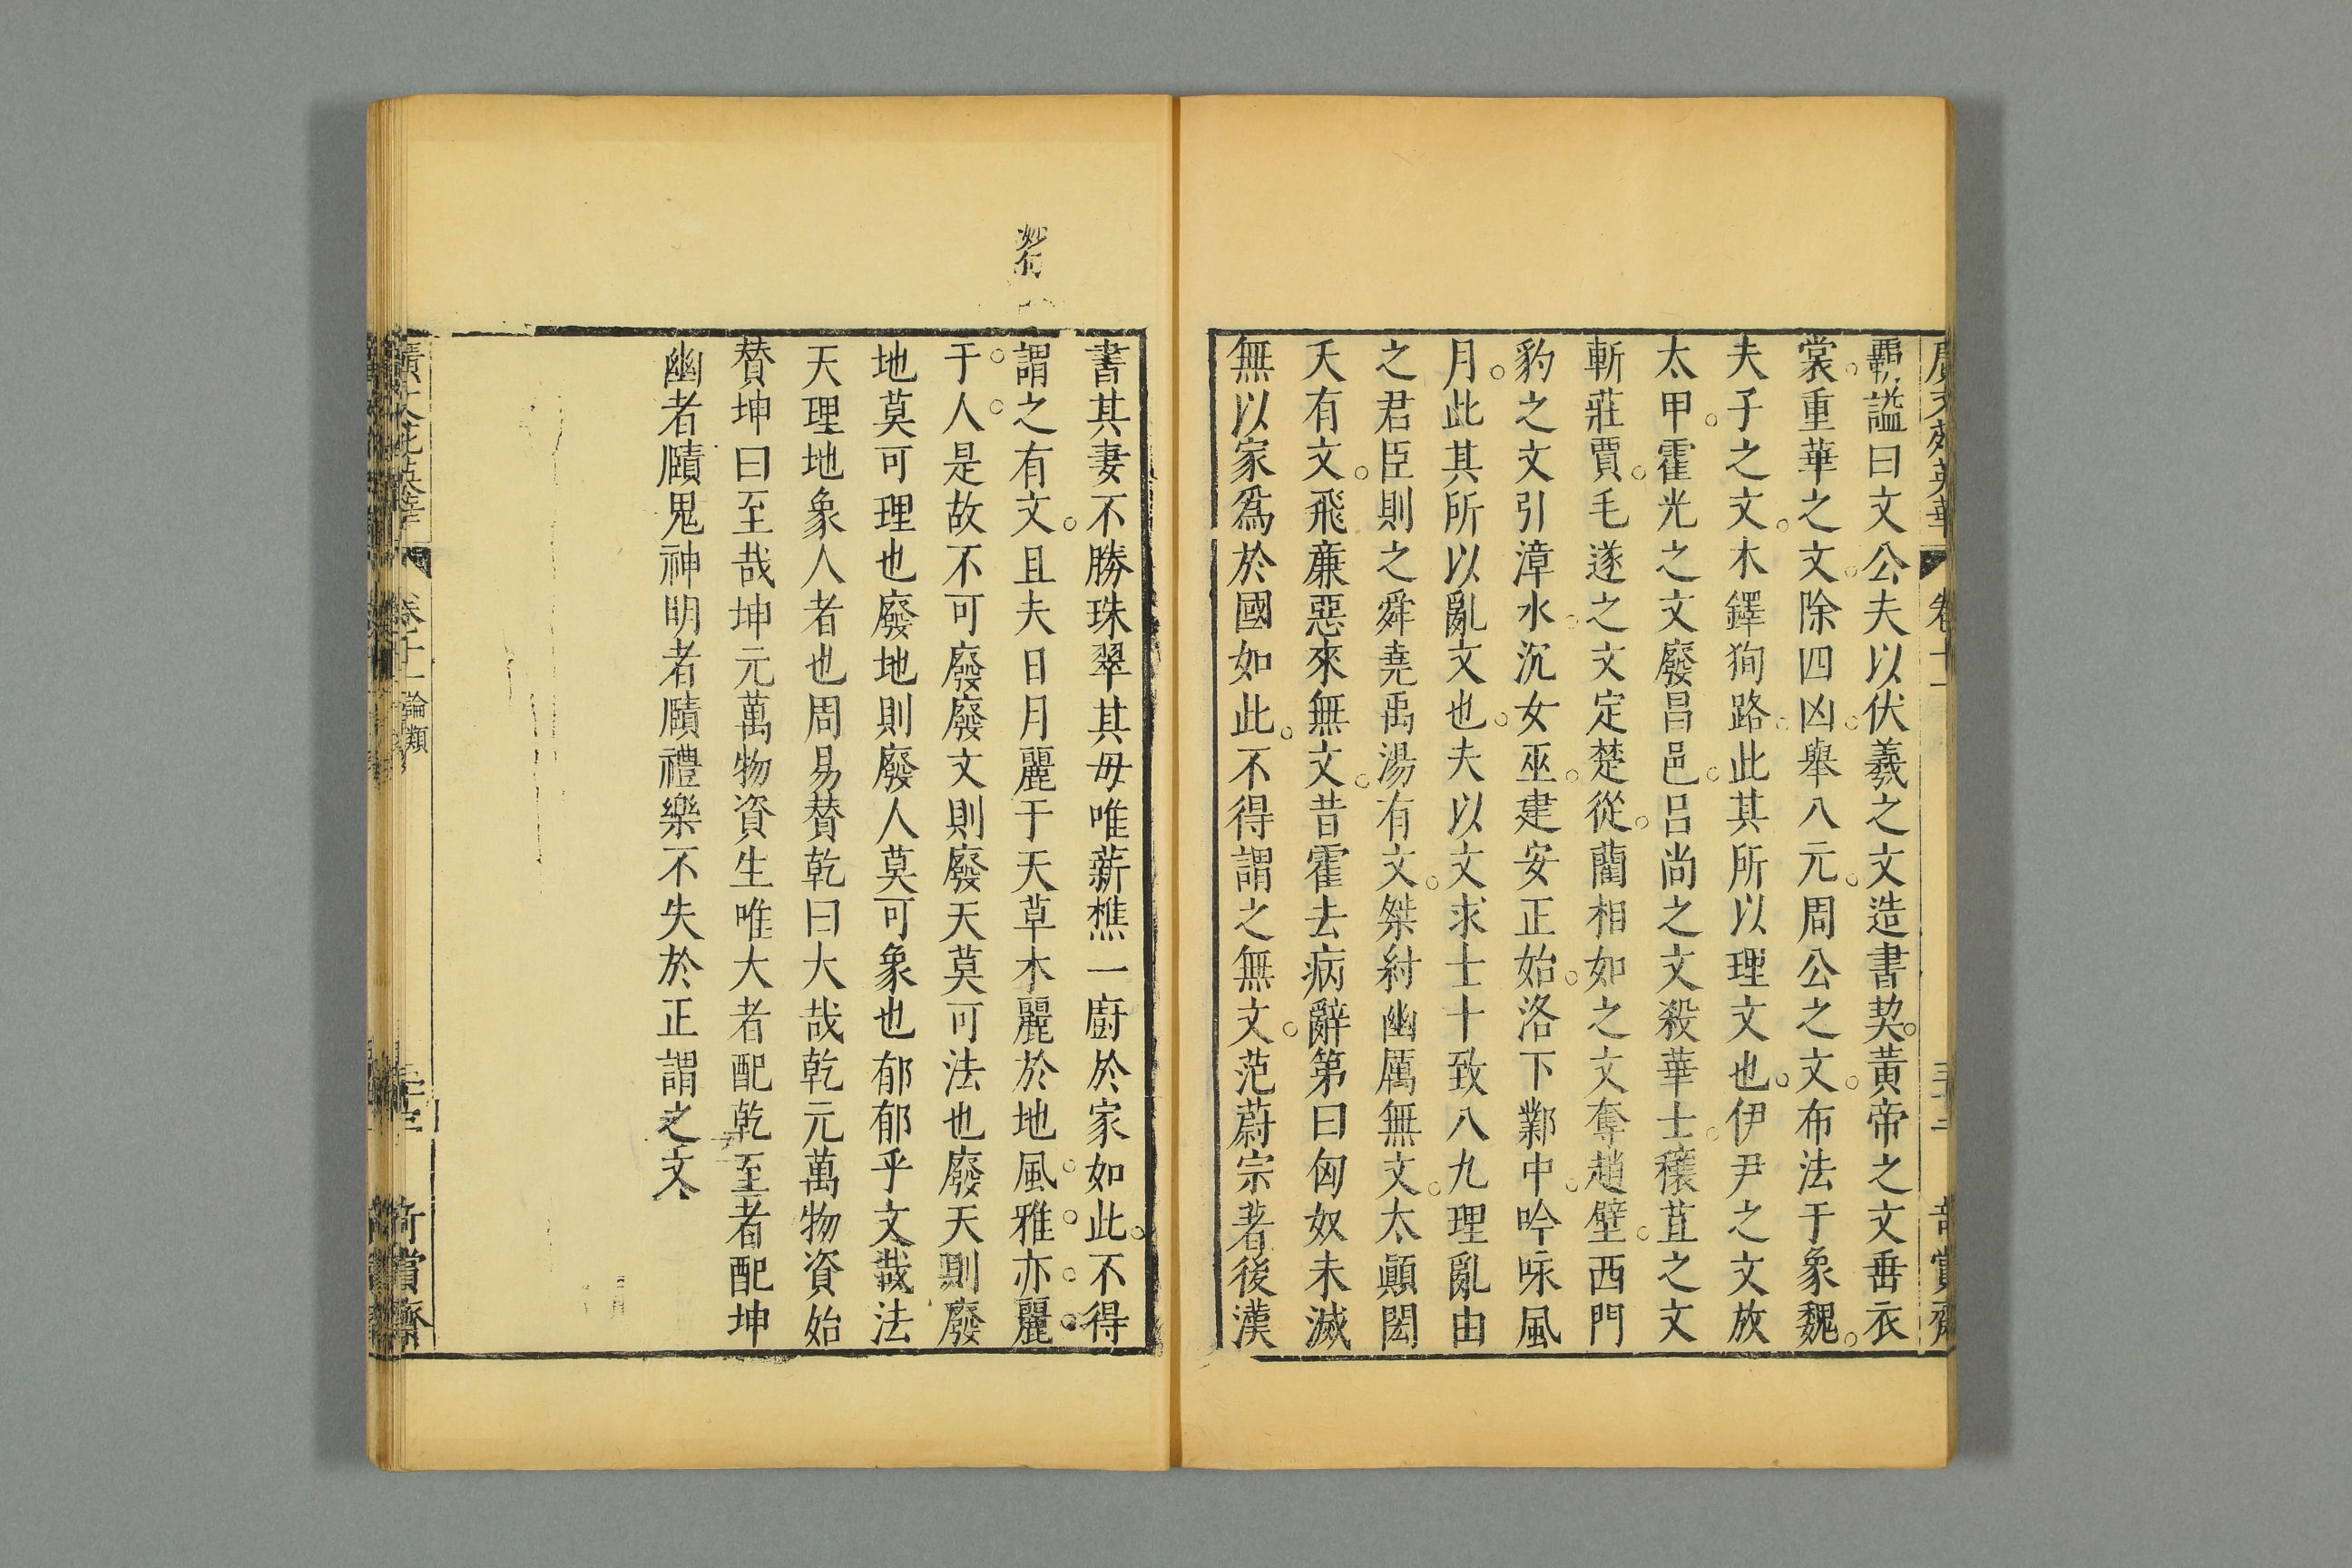 覇謚曰文公夫以伏羲之文造書契黃帝之文垂衣
裳重華之文除四凶舉八元周公之文布法于象魏
夫子之文木鐸狥路此其所以理文也伊尹之文放
太甲霍光之文廢昌邑呂尚之文殺華士穰苴之文
斬莊賈毛遂之文定楚從藺相如之文奪趙壁西門
豹之文引漳水沉女巫建安正始洛下鄴中吟咏風
月此其所以亂文也夫以文求士十致八九理亂由
之君臣則之舜堯禹湯有文桀紂幽厲無文太顚閎
夭有文飛廉惡來無文昔霍去病辭第曰匈奴未滅
無以家爲於國如此不得謂之無文范蔚宗著後漢
書其妻不勝珠翠其母唯薪樵一廚於家如此不得
謂之有文且夫日月麗于天草木麗於地風雅亦麗
于人是故不可廢廢文則廢天莫可法也廢天則廢
地莫可理也廢地則廢人莫可象也郁郁乎文哉法
天理地象人者也周易賛乾曰大哉乾元萬物資始
賛坤曰至哉坤元萬物資生唯大者配乾至者配坤
幽者賾鬼神明者賾禮樂不失於正謂之文
卷十一 論類